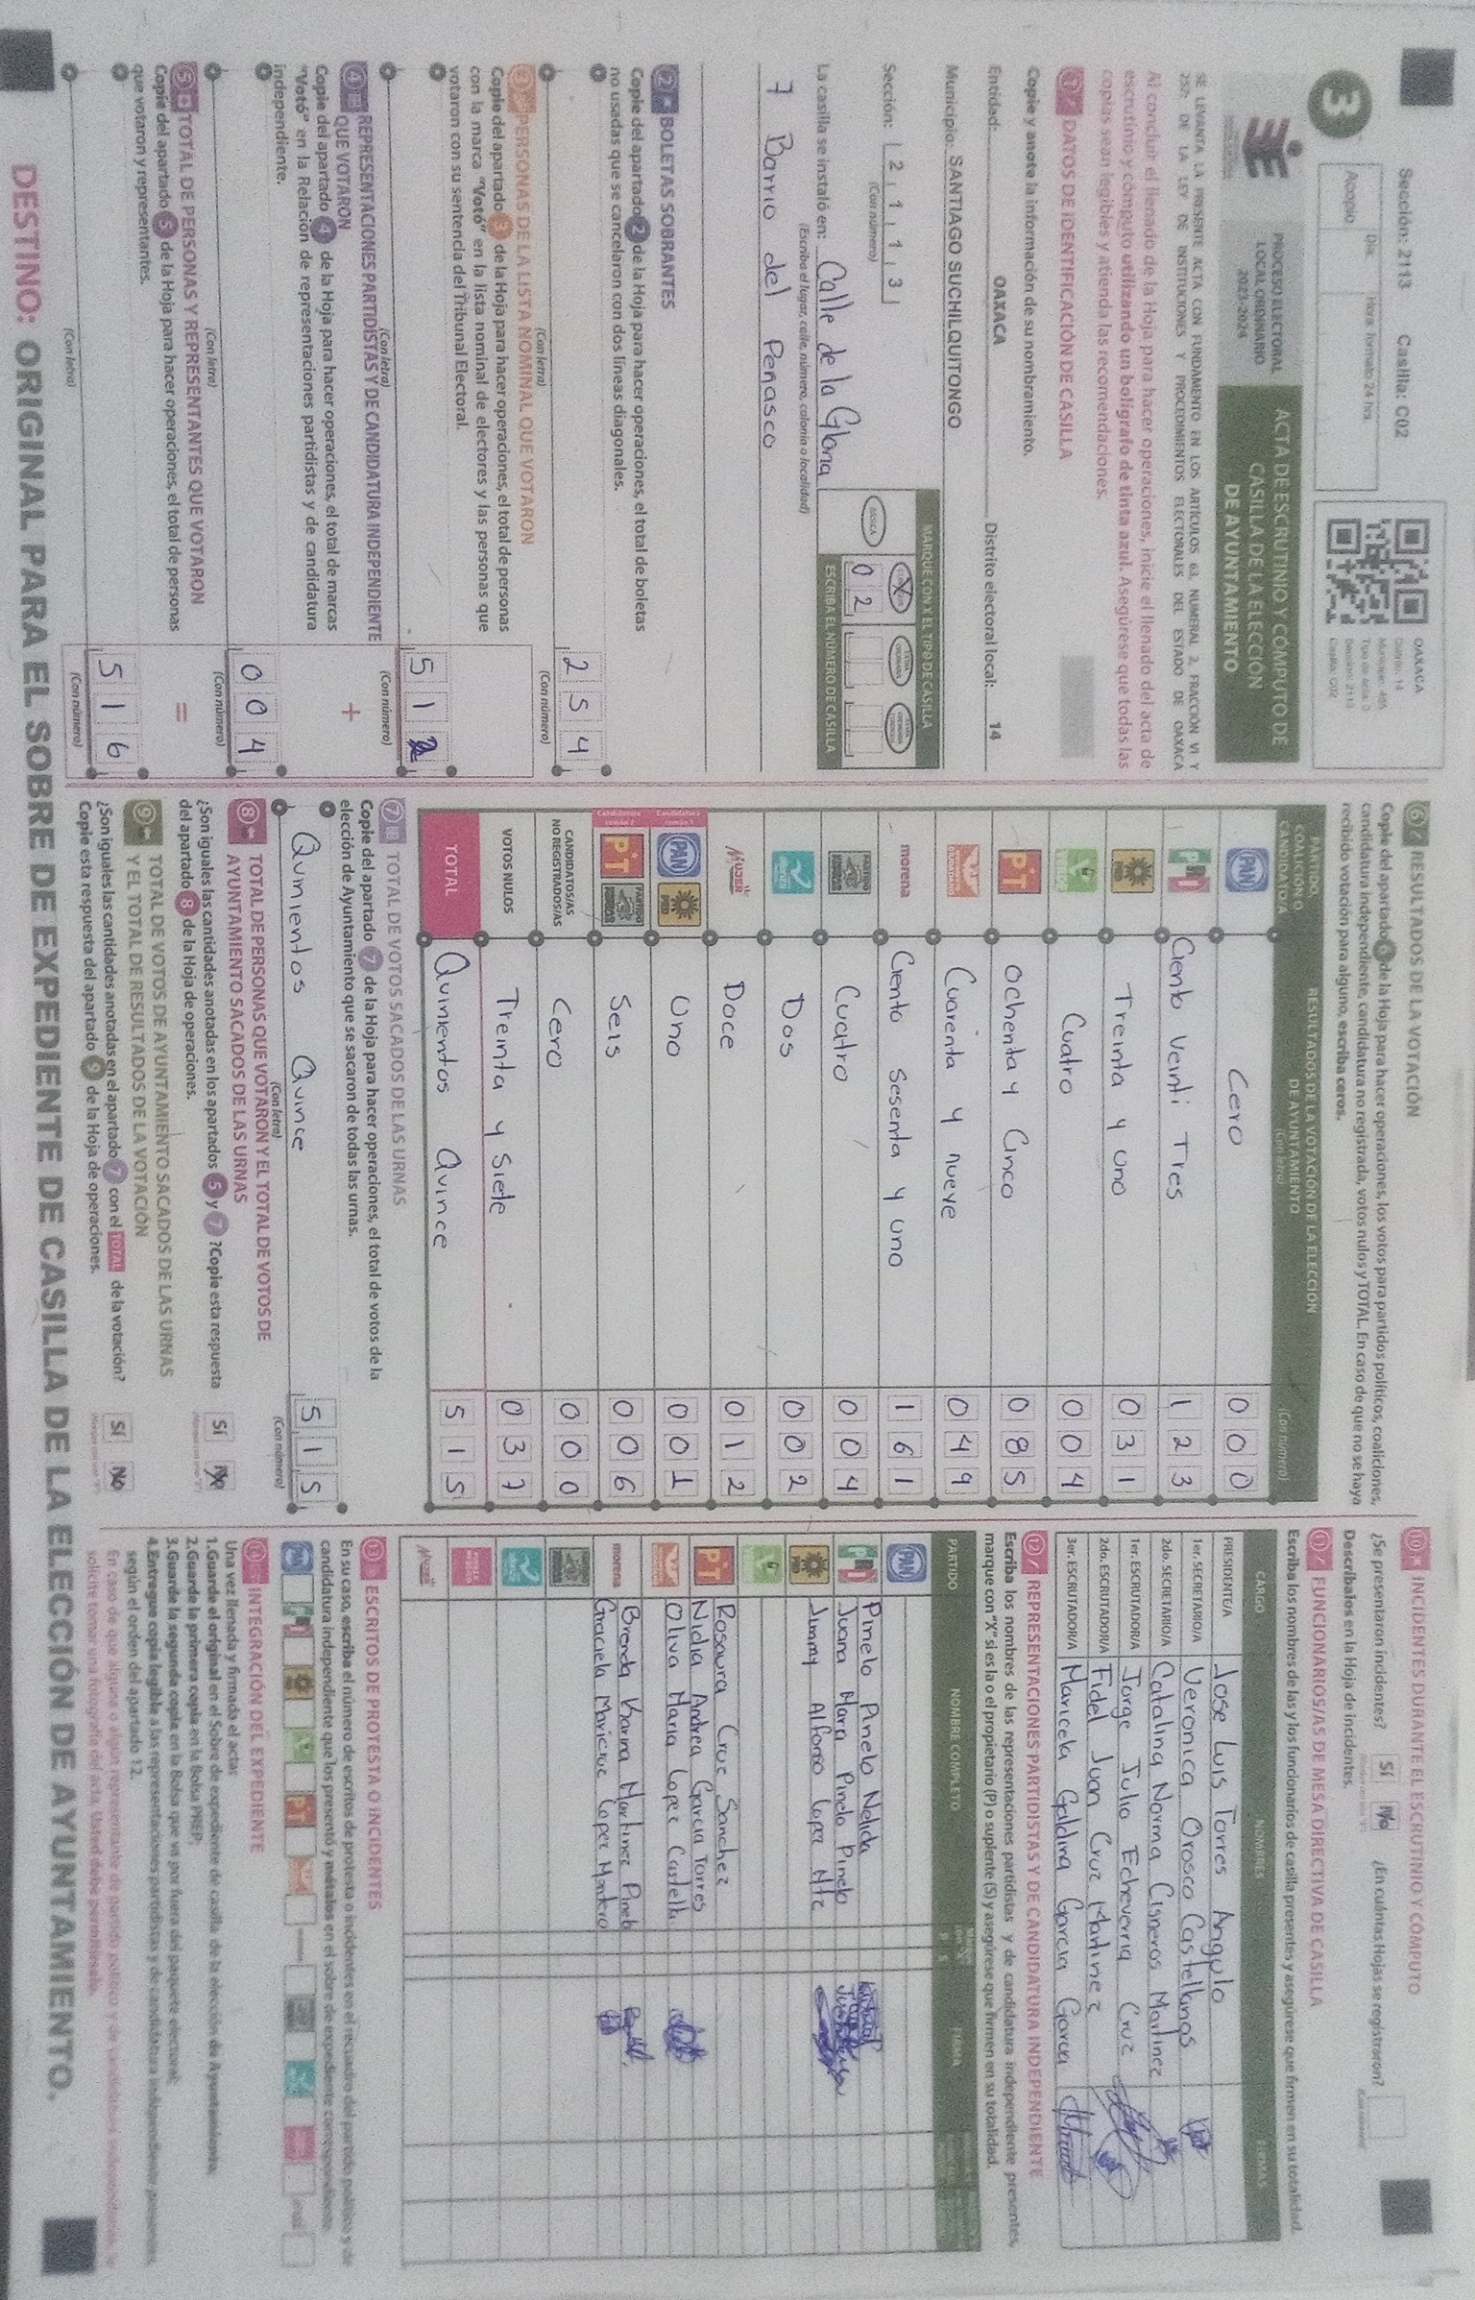 Sección: 2113 Casilla: C02
Día:
Hora: formato 24 hrs.
Acopio
3
OAXACA
Distrito: 14
Tipo de acta: 3
Sección: 2113
Casilla: C02
PROCESO ELECTORAL
LOCAL ORDINARIO
2023-2024
ACTA DE ESCRUTINIO Y CÓMPUTO DE
CASILLA DE LA ELECCIÓN
DE AYUNTAMIENTO
SE LEVANTA LA PRESENTE ACTA CON FUNDAMENTO EN LOS ARTÍCULOS 63, NUMERAL 2, FRACCIÓN VI Y
232, DE LA LEY DE INSTITUCIONES Y PROCEDIMIENTOS ELECTORALES DEL ESTADO DE OAXACA
Al concluir el llenado de la Hoja para hacer operaciones, inicie el llenado del acta de
escrutinio y cómputo utilizando un bolígrafo de tinta azul. Asegúrese que todas las
copias sean legibles y atienda las recomendaciones.
1 DATOS DE IDENTIFICACIÓN DE CASILLA
Copie y anote la información de su nombramiento.
Entidad: OAXACA Distrito electoral local: 14
Municipio: SANTIAGO SUCHILQUITONGO
Sección: 2 1 1 3
(Con número)
MARQUE CON X EL TIPO DE CASILLA
BÁSICA
0 2
ESCRIBA EL NÚMERO DE CASILLA
La casilla se instaló en: Calle de la Gloria
(Escriba el lugar, calle, número, colonia o localidad)
7 Barrio del Peñasco
2 BOLETAS SOBRANTES
Copie del apartado 2 de la Hoja para hacer operaciones, el total de boletas
no usadas que se cancelaron con dos líneas diagonales.
2 5 4
(Con letra) (Con número)
3 PERSONAS DE LA LISTA NOMINAL QUE VOTARON
Copie del apartado 3 de la Hoja para hacer operaciones, el total de personas
con la marca "Votó" en la lista nominal de electores y las personas que
votaron con su sentencia del Tribunal Electoral.
5 1 2
(Con letra) (Con número)
4 REPRESENTACIONES PARTIDISTAS Y DE CANDIDATURA INDEPENDIENTE
QUE VOTARON
+
Copie del apartado 4 de la Hoja para hacer operaciones, el total de marcas
"Votó" en la Relación de representaciones partidistas y de candidatura
independiente.
0 0 4
(Con letra) (Con número)
5 TOTAL DE PERSONAS Y REPRESENTANTES QUE VOTARON
=
Copie del apartado 5 de la Hoja para hacer operaciones, el total de personas
que votaron y representantes.
5 1 6
(Con letra) (Con número)
6 RESULTADOS DE LA VOTACIÓN
Copie del apartado 6 de la Hoja para hacer operaciones, los votos para partidos políticos, coaliciones,
candidatura independiente, candidatura no registrada, votos nulos y TOTAL. En caso de que no se haya
recibido votación para alguno, escriba ceros.
PARTIDO,
COALICIÓN O
CANDIDATO/A
RESULTADOS DE LA VOTACIÓN DE LA ELECCIÓN
DE AYUNTAMIENTO
(Con letra)
(Con número)
PAN Cero 0 0 0
PRI Ciento Veinti Tres 1 2 3
PRD Treinta y uno 0 3 1
Cuatro 0 0 4
PT Ochenta y Cinco 0 8 5
Cuarenta y nueve 0 4 9
morena Ciento Sesenta y uno 1 6 1
Cuatro 0 0 4
Dos 0 0 2
MUJER Doce 0 1 2
PAN PRD Uno 0 0 1
PT Seis 0 0 6
CANDIDATOS/AS
NO REGISTRADOS/AS
Cero 0 0 0
VOTOS NULOS Treinta y Siete 0 3 7
TOTAL Quinientos Quince 5 1 5
7 TOTAL DE VOTOS SACADOS DE LAS URNAS
Copie del apartado 7 de la Hoja para hacer operaciones, el total de votos de la
elección de Ayuntamiento que se sacaron de todas las urnas.
Quinientos Quince 5 1 5
(Con letra) (Con número)
8 TOTAL DE PERSONAS QUE VOTARON Y EL TOTAL DE VOTOS DE
AYUNTAMIENTO SACADOS DE LAS URNAS
¿Son iguales las cantidades anotadas en los apartados 5 y 7? Copie esta respuesta
del apartado 8 de la Hoja de operaciones.
SÍ NO
9 TOTAL DE VOTOS DE AYUNTAMIENTO SACADOS DE LAS URNAS
Y EL TOTAL DE RESULTADOS DE LA VOTACIÓN
¿Son iguales las cantidades anotadas en el apartado 7 con el TOTAL de la votación?
Copie esta respuesta del apartado 9 de la Hoja de operaciones.
SÍ NO
10 INCIDENTES DURANTE EL ESCRUTINIO Y CÓMPUTO
¿Se presentaron incidentes? SÍ NO ¿En cuántas Hojas se registraron?
Descríbalos en la Hoja de incidentes.
11 FUNCIONARIOS/AS DE MESA DIRECTIVA DE CASILLA
Escriba los nombres de las y los funcionarios de casilla presentes y asegúrese que firmen en su totalidad.
CARGO NOMBRES FIRMAS
PRESIDENTE/A Jose Luis Torres Angulo
1er. SECRETARIO/A Veronica Orosco Castellanos
2do. SECRETARIO/A Catalina Norma Cisneros Martinez
1er. ESCRUTADOR/A Jorge Julio Echeverria Cruz
2do. ESCRUTADOR/A Fidel Juan Cruz Martinez
3er. ESCRUTADOR/A Maricela Galdina Garcia Garcia
12 REPRESENTACIONES PARTIDISTAS Y DE CANDIDATURA INDEPENDIENTE
Escriba los nombres de las representaciones partidistas y de candidatura independiente presentes,
marque con "X" si es la o el propietario (P) o suplente (S) y asegúrese que firmen en su totalidad.
PARTIDO NOMBRE COMPLETO FIRMA
PAN
Pinelo Pinelo Nelida
Juana Mara Pinelo Pinelo
Jimmy Alfonso Lopez Mtz
Rosaura Cruz Sanchez
PT Nidia Andrea Garcia Torres
Oliva Maria Lopez Castell
Brenda Karina Martinez Pinelo
morena Graciela Maricruz Lopez Montero
13 ESCRITOS DE PROTESTA O INCIDENTES
En su caso, escriba el número de escritos de protesta o incidentes en el recuadro del partido político y de
candidatura independiente que los presentó y métalos en el sobre de expediente correspondiente.
14 INTEGRACIÓN DEL EXPEDIENTE
Una vez llenada y firmada el acta:
1.Guarde el original en el Sobre de expediente de casilla de la elección de Ayuntamiento;
2.Guarde la primera copia en la Bolsa PREP;
3.Guarde la segunda copia en la Bolsa que va por fuera del paquete electoral;
4.Entregue copia legible a las representaciones partidistas y de candidatura independiente presentes,
según el orden del apartado 12.
DESTINO: ORIGINAL PARA EL SOBRE DE EXPEDIENTE DE CASILLA DE LA ELECCIÓN DE AYUNTAMIENTO.